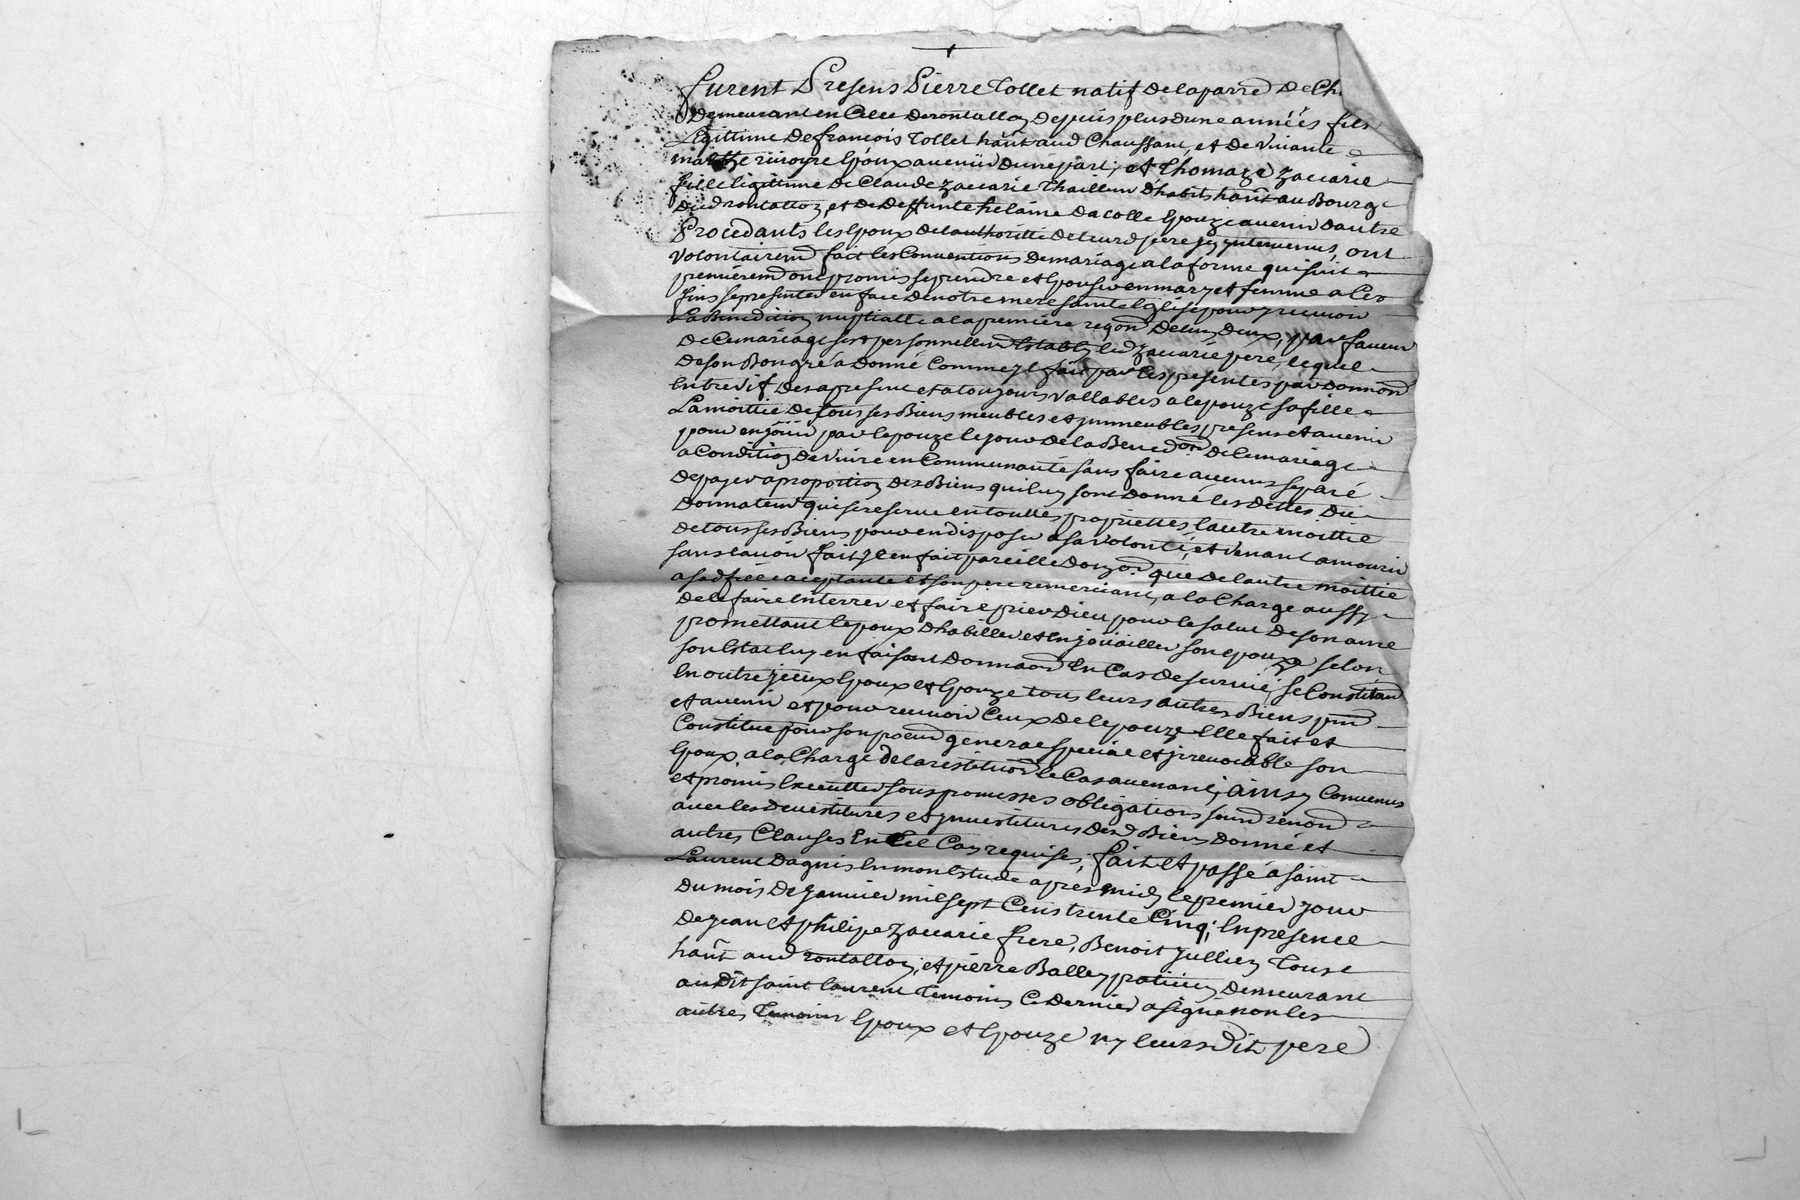 furent Presens Pierre Tollet natif de la parr̃e De Ch
Demeurant en Celle De rontallon Depuis plus dune annéés fils
Légittime De francois Tollet hãnt aud Chaussant, et De vivante
marthe rivoyre Epoux avenir Dune part; et Thomaze Zaccarie
fille légittime de Claude Zaccarie Thailleur D'habits hãnt au Bourg
Dud rontallon, et de Deffunte helaine Dacolle Epouze avenir Dautre
Procedants les Epoux de lauthoritté de leurs d pere jcy yntervenus, ont
volontairemt fait les Conventions De mariage a la forme qui suit
premieremt ont promis se prendre et Epouser en mary et femme a Ces
fins se presenter en face De notre mere sainte Eglise pour y recevoir
La Benediction nuptialle a la premiere reqon De lun Deux, par faveur
De Ce mariage sest personnellemt Estably led Zaccarie pere, lequel
De son Bongré à Donné Comme yl fait par Ces presentes par Donnaon
Entrevif Des a present et a toujours vallables a lepouze sa fille
La moittié De tous ses Biens meubles et ymmeubles presens et avenir
pour en jöüir par lepouze le jour De la Benedon De Ce mariage
a Condition De vivre en Communauté sans faire aucuns séparé
De payer a proportion Des Biens qui luy sont Donné les Dettes Du
Donnateur qui se reserve en touttes propriettés lautre moittié
de tous ses Biens pour en disposer a sa volonté, et venant a mourir
sans lavoir fait yl en fait pareille Donaon que De lautre moittié
a sad fille aceptante et son pere remerciant, a la Charge aussy
De le faire Enterrer et faire prier Dieu pour le salut De son ame
promettant lepoux Dhabiller et Enjoüailler son epouze selon
son Estat luy en faisant Donnaon En Cas De survie; se Constituant
En outre jceux Epoux et Epouze tous leurs autres Biens pnts
et avenir et pour recevoir Ceux De lepouze Elle fait et
Constitue pour son procur general special et jrrevocable son
Epoux, a la Charge de la restitution le Cas avenant; ainsy Convenus
et promis Executter sous promesses obligations soumd renond
avec les devestitures et ynvestitures Desd Biens Donné et
autres Clauses En tel Cas requises; fait et passé à saint
Laurent Dagnis En mon Estude apres midy le premier jour
Du mois De janvier mil sept Cens trente Cinq; En presence
De jean et philipe Zaccarie frere, Benoit Jullien Tous
hãnt aud rontallon, et pierre Balley praticien Demeurant
audit saint laurent Temoins Ce Dernier a signé non les
autres Temoins Epoux et Epouze ny leurs Dit pere